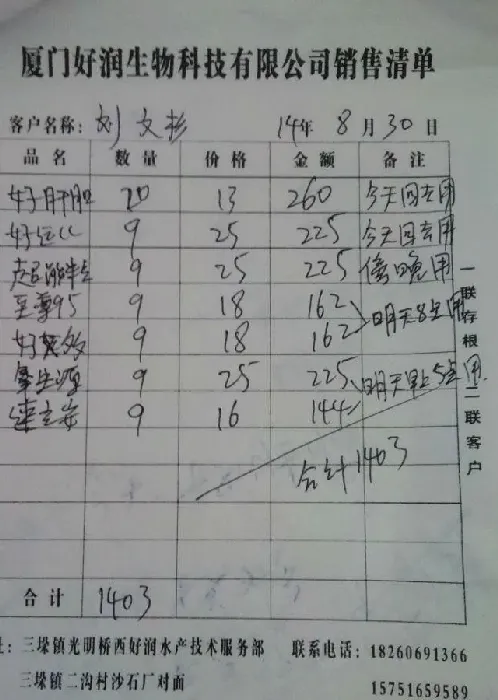 厦门好润生物科技有限公司销售清单
客户名称: 刘文彬 14年 8月 30日
品名 数量 价格 金额 备注
好肝胆 20 13 260 今天回去用
好 9 25 225 今天回去用
9 25 225 傍晚用
至尊95 9 18 162 明天8点用
9 18 162
9 25 225 明天早上5点用
9 16 144
合计1403
合计 1403
一联存根 二联客户
址: 三垛镇光明桥西好润水产技术服务部 联系电话: 18260691366
三垛镇二沟村沙石厂对面 15751659589